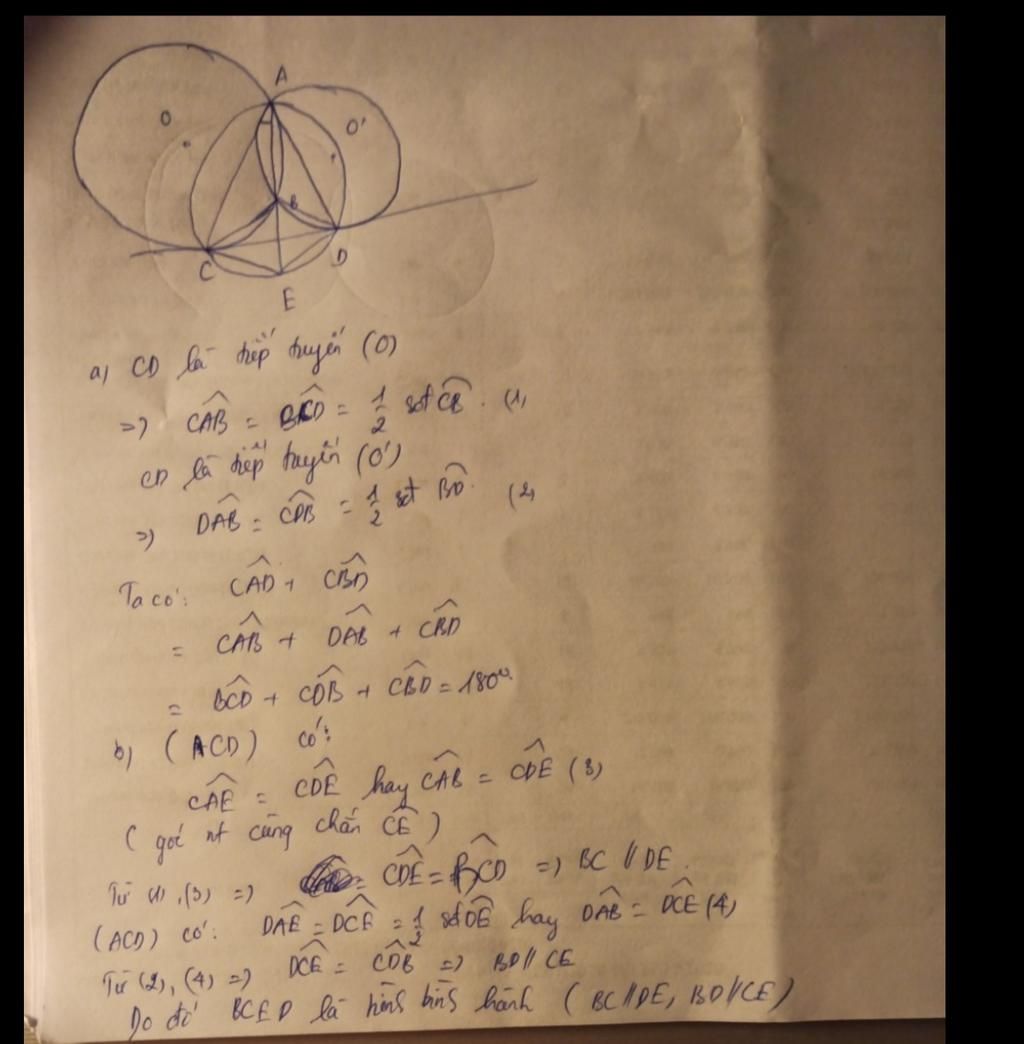 A
O
O'
B
C
D
E
a) CD là tiếp tuyến (O)
=> \widehat{CAB} = \widehat{BCD} = \frac{1}{2} sđ \widehat{CB}. (1)
CD là tiếp tuyến (O')
=> \widehat{DAB} = \widehat{CDB} = \frac{1}{2} sđ \widehat{BD}. (2)
Ta có: \widehat{CAD} + \widehat{CBD}
= \widehat{CAB} + \widehat{DAB} + \widehat{CBD}
= \widehat{BCD} + \widehat{CDB} + \widehat{CBD} = 180°.
b) (ACD) có:
\widehat{CAE} = \widehat{CDE} hay \widehat{CAB} = \widehat{CDE} (3)
(góc nt cùng chắn \widehat{CE})
Từ (1), (3) => \widehat{CDE} = \widehat{BCD} => BC // DE.
(ACD) có: \widehat{DAE} = \widehat{DCE} = \frac{1}{2} sđ \widehat{DE} hay \widehat{DAB} = \widehat{DCE} (4)
Từ (2), (4) => \widehat{DCE} = \widehat{CDB} => BD // CE
Do đó BCED là hình bình hành (BC // DE, BD // CE)